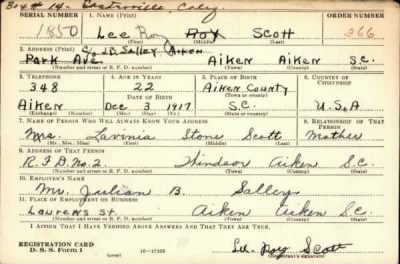 SERIAL NUMBER 1. NAME (Print) ORDER NUMBER
1850 Lee Roy Roy Scott 366
(First) (Middle) (Last)
c/o J.D. Salley Aiken
2. ADDRESS (Print)
Park Ave. Aiken Aiken S.C.
(Number and street or R. F. D. number) (Town) (County) (State)
3. TELEPHONE 4. AGE IN YEARS 5. PLACE OF BIRTH 6. COUNTRY OF CITIZENSHIP
348 22 Aiken County
DATE OF BIRTH (Town or county)
Aiken Dec 3 1917 S.C. U.S.A
(Exchange) (Mo.) (Day) (Yr.) (State or country)
7. NAME OF PERSON WHO WILL ALWAYS KNOW YOUR ADDRESS 8. RELATIONSHIP OF THAT PERSON
Mrs. Lavinia Stone Scott Mother
(Mr., Mrs., Miss) (First) (Middle) (Last)
9. ADDRESS OF THAT PERSON
R.F.D. No. 2 Windsor Aiken S.C.
(Number and street or R. F. D. number) (Town) (County) (State)
10. EMPLOYER'S NAME
Mr. Julian B. Salley
11. PLACE OF EMPLOYMENT OR BUSINESS
Laurens St. Aiken Aiken S.C.
(Number and street or R. F. D. number) (Town) (County) (State)
I AFFIRM THAT I HAVE VERIFIED ABOVE ANSWERS AND THAT THEY ARE TRUE.
REGISTRATION CARD
D. S. S. Form 1 Lee Roy Scott
(over) (Registrant's signature)